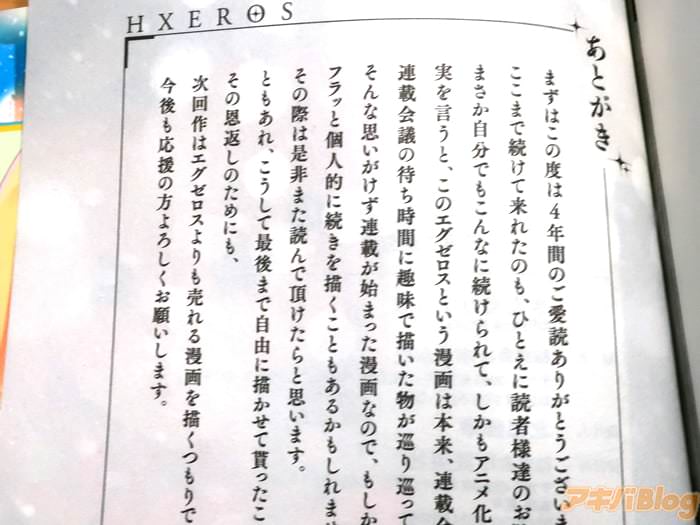 HXEROS
あとがき
まずはこの度は4年間のご愛読ありがとうございま
ここまで続けて来れたのも、ひとえに読者様達のお
まさか自分でもこんなに続けられて、しかもアニメ化
実を言うと、このエグゼロスという漫画は本来、連載会
連載会議の待ち時間に趣味で描いた物が巡り巡って
そんな思いがけず連載が始まった漫画なので、もしか
フラッと個人的に続きを描くこともあるかもしれませ
その際は是非また読んで頂けたらと思います。
ともあれ、こうして最後まで自由に描かせて貰ったこ
その恩返しのためにも、
次回作はエグゼロスよりも売れる漫画を描くつもりで
今後も応援の方よろしくお願いします。
アキバBlog